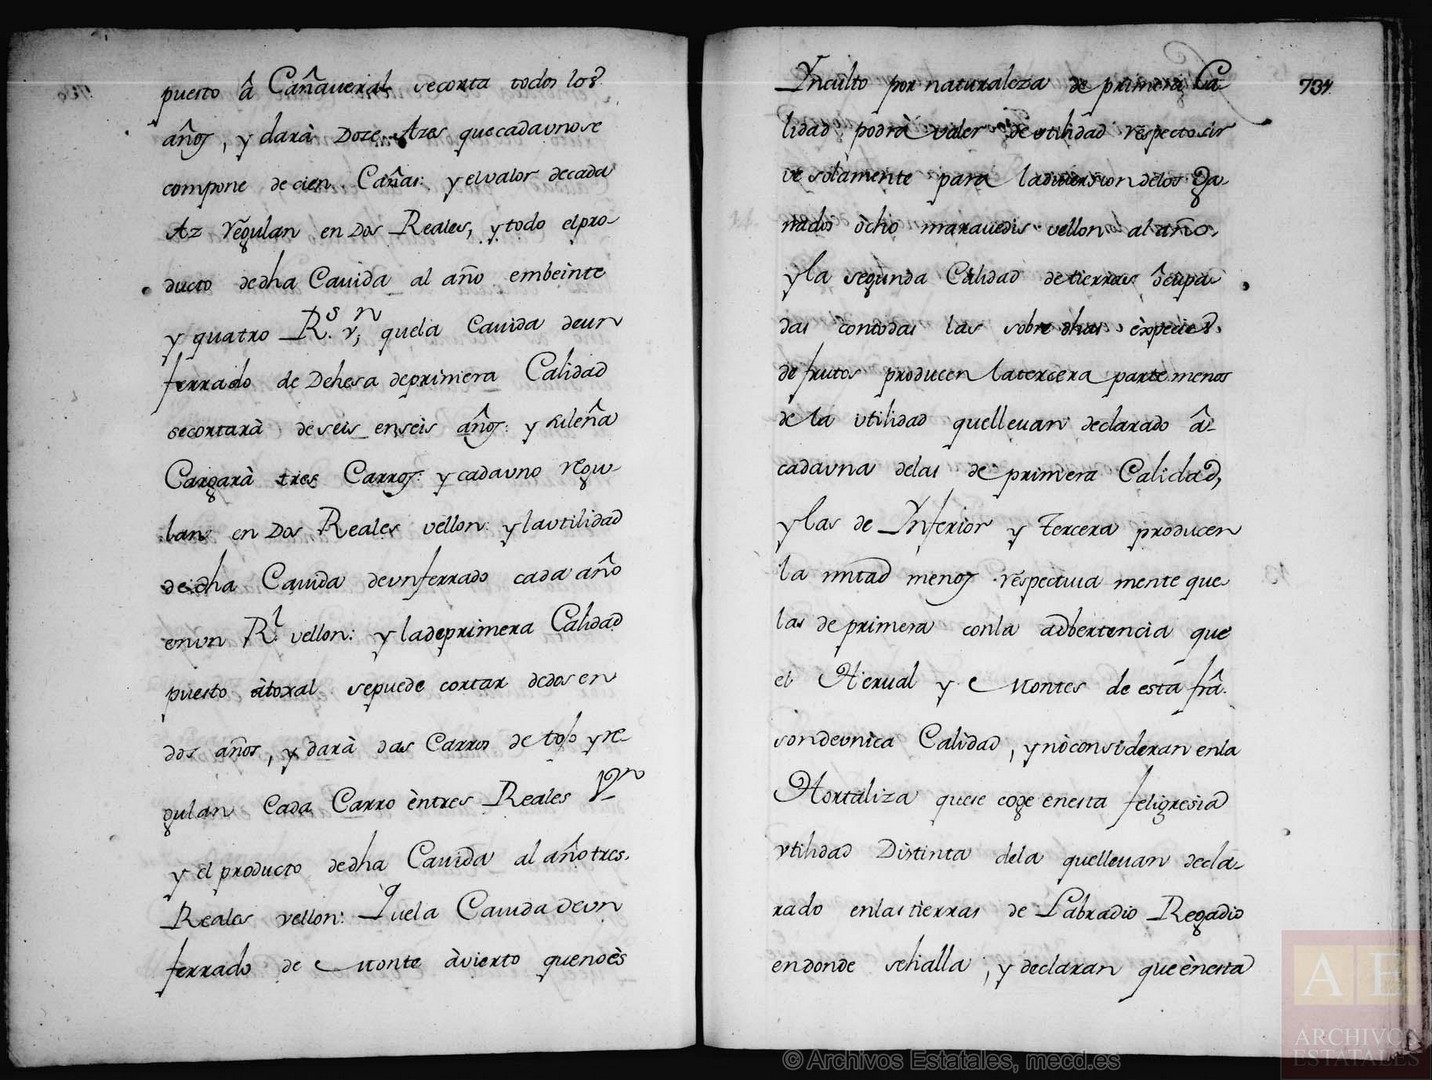 puesto â Cañaveral secorta todos los
años, y darà Doze Azes quecadaunose
compone de cien Cañas: y elvalor decada
Az regulan en Dos Reales, y todo elpro-
ducto dedha Cavida al año embeinte
y quatro R.s v.n, quela Cavida deun
ferrado de Dehesa deprimera Calidad
secortarà deseis enseis años: y suleña
Cargarà tres Carros: y cadauno regu-
lan en Dos Reales vellon: y lautilidad
dedha Cavida deunferrado cada año
enun R.l vellon: y ladeprimera Calidad
puesto àtoxal sepuede cortar dedos en
dos años, y darà dos Carros de tojo y re-
gulan Cada Carro èntres Reales V.n
y el producto dedha Cavida al año tres
Reales vellon: Quela Cavida deun
ferrado de Monte àvierto quenoès
734
Ynculto por naturaleza de primera Ca-
lidad podrà valer de utilidad respecto sir
ve solamente para ladiversion delos Ga-
nados ôcho maravedis vellon al año,
y la segunda Calidad detierras ôcupa-
das contodas las sobre dhas èspecies
de frutos producen latercera parte menos
de la utilidad quellevan declarado â
cadauna delas de primera Calidad,
y las de Ynferior y tercera producen
la mitad menos respectiva mente que
las de primera conla adbertencia que
el Herval y Montes de esta frâ.
sondeunica Calidad, y nòconsideran enla
Hortaliza quese coge enesta feligresia
utilidad Distinta dela quellevan decla-
rado enlastierras de Labradio Regadio
endonde sehalla, y declaran que ènesta
© Archivos Estatales, mecd.es
AE
ARCHIVOS
ESTATALES